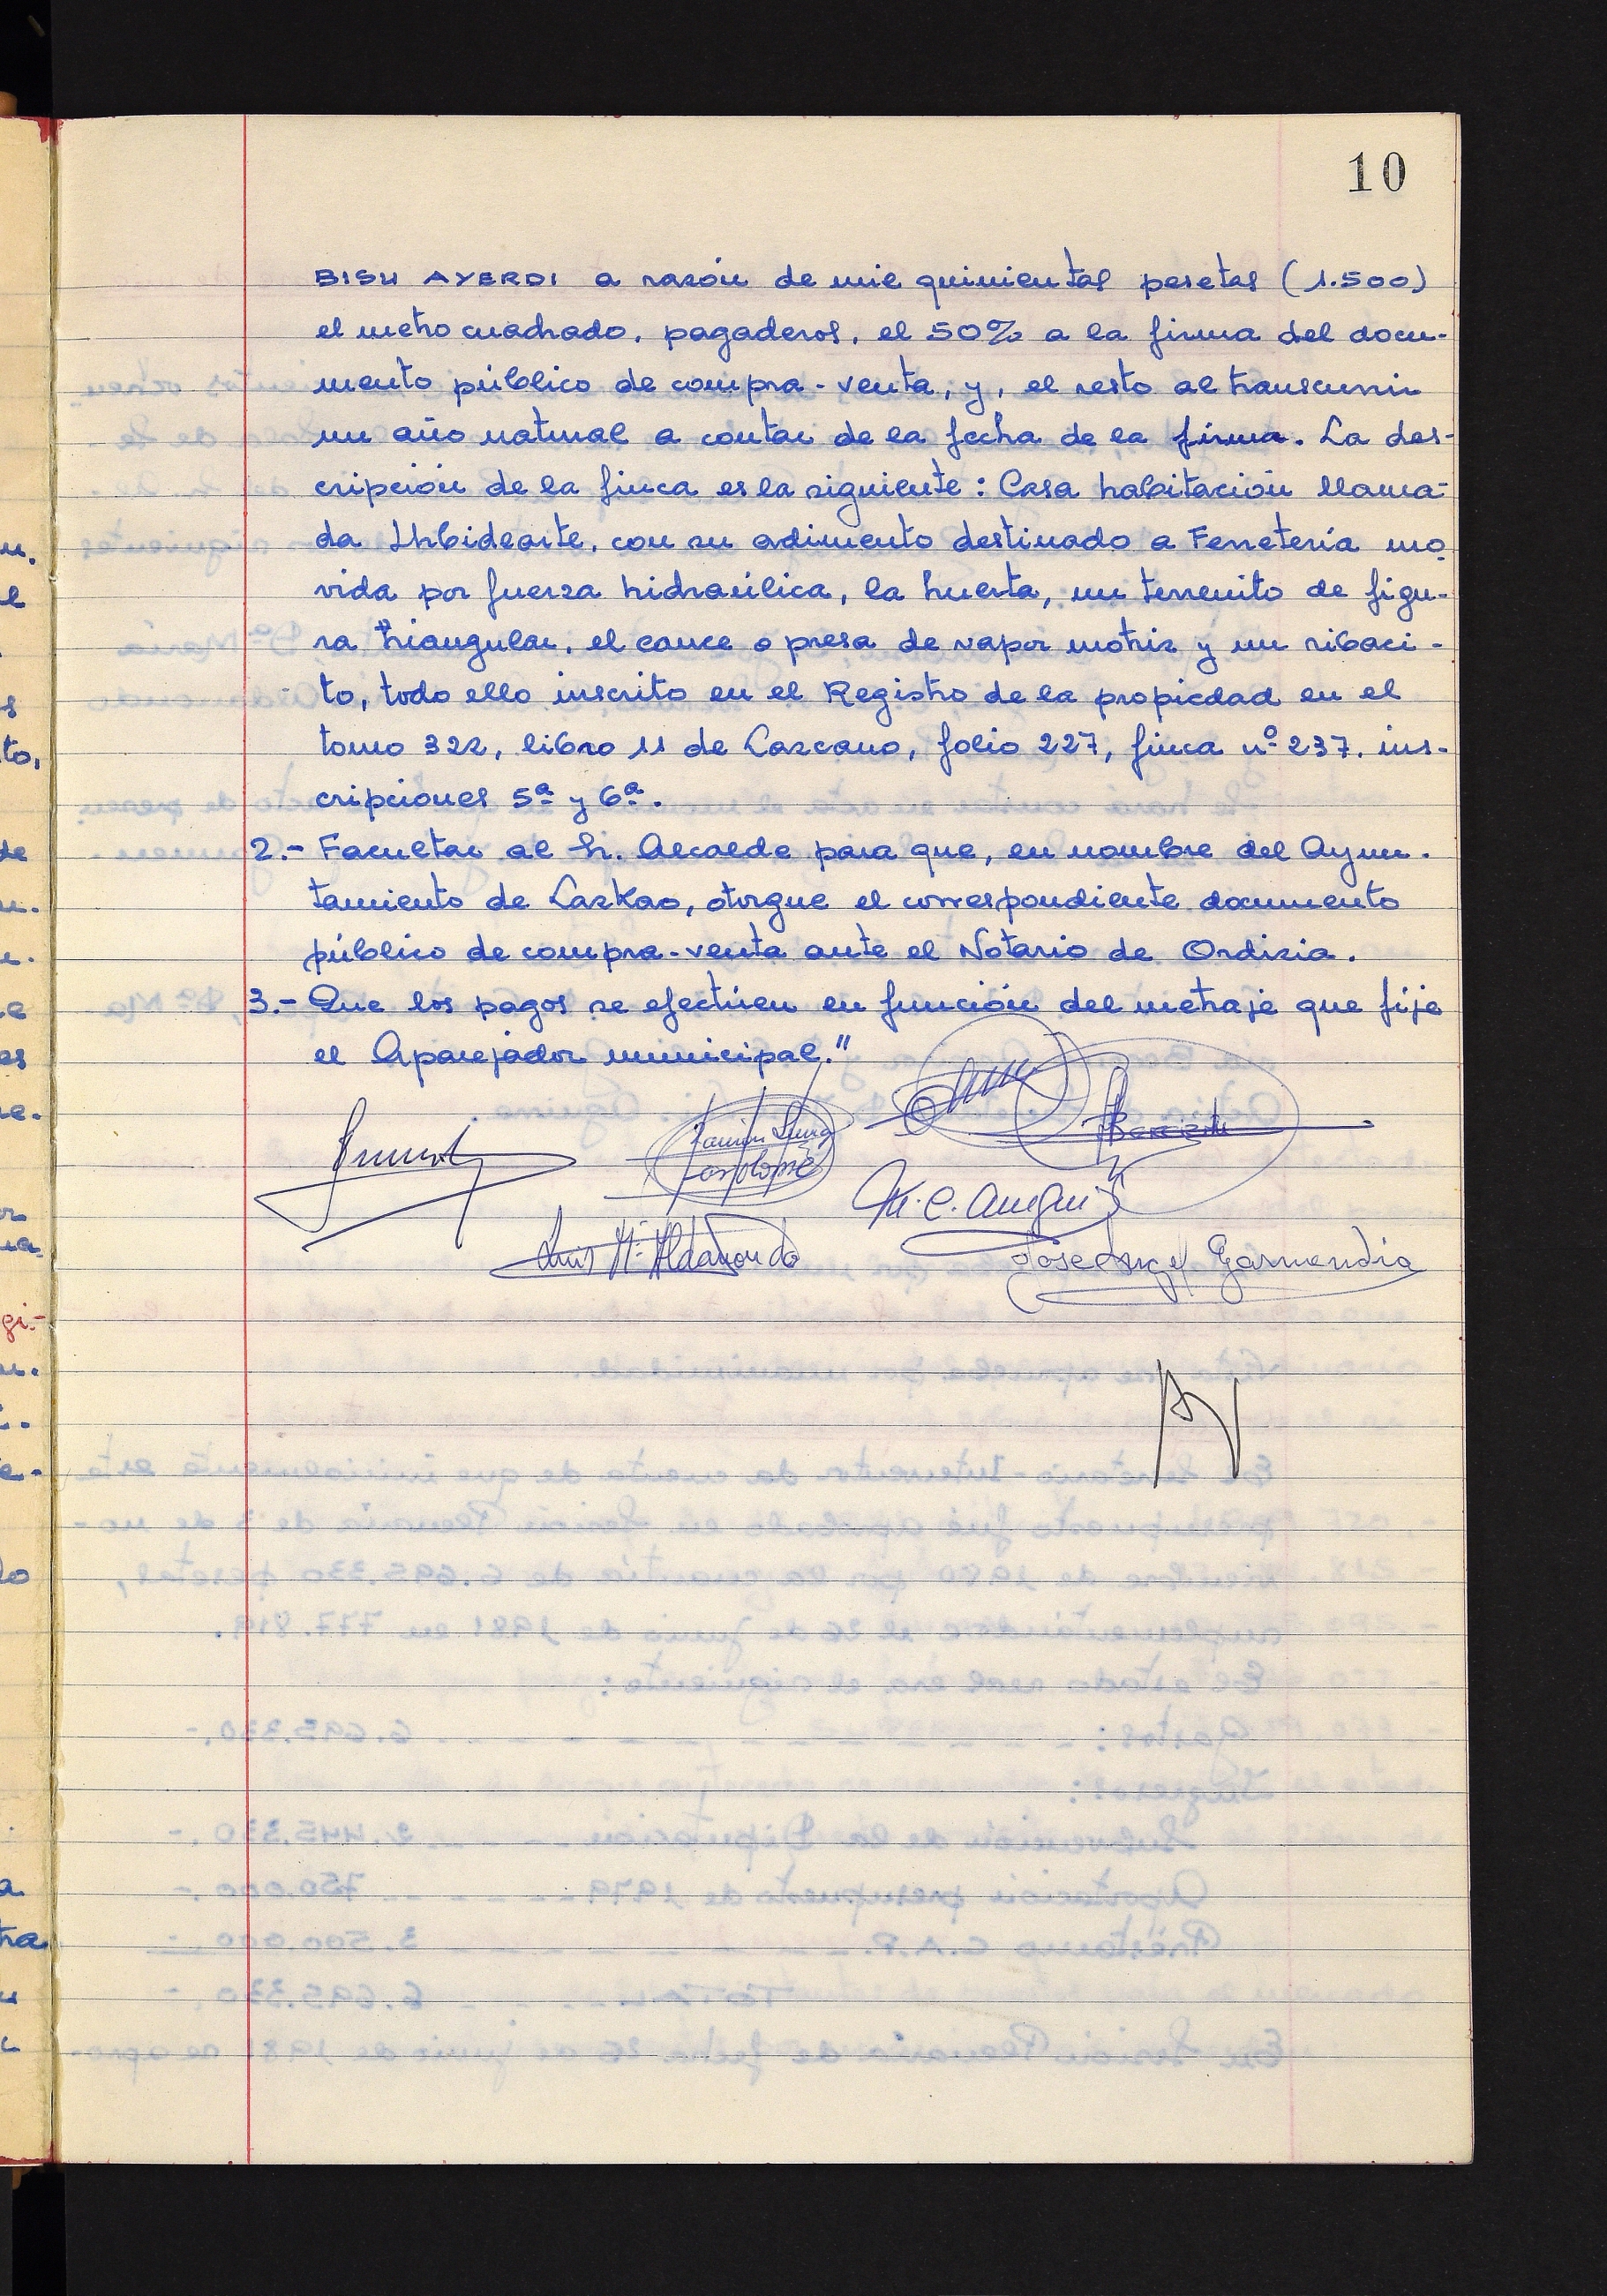 10
BISU AYERDI a razón de mil quinientas pesetas (1.500)
el metro cuadrado, pagaderos, el 50% a la firma del docu-
mento público de compra-venta, y, el resto al transcurrir
un año natural a contar de la fecha de la firma. La des-
cripción de la finca es la siguiente: Casa habitación llama-
da Urbidearte, con su adimento destinado a Ferretería mo-
vida por fuerza hidraúlica, la huerta, un terrenito de figu-
ra triangular, el cauce o presa de vapor motriz y un ribaci-
to, todo ello inscrito en el Registro de la propiedad en el
tomo 322, libro 11 de Lazcano, folio 227, finca nº 237. ins-
cripciones 5ª y 6ª.
2.- Facultar al Sr. Alcalde para que, en nombre del Ayun-
tamiento de Lazkao, otorgue el correspondiente documento
público de compra-venta ante el Notario de Ordizia.
3.- Que los pagos se efectúen en función del metraje que fije
el Aparejador municipal."
M.C. Aunguis
Luis Mª Aldanondo
Jose Angel Garmendia